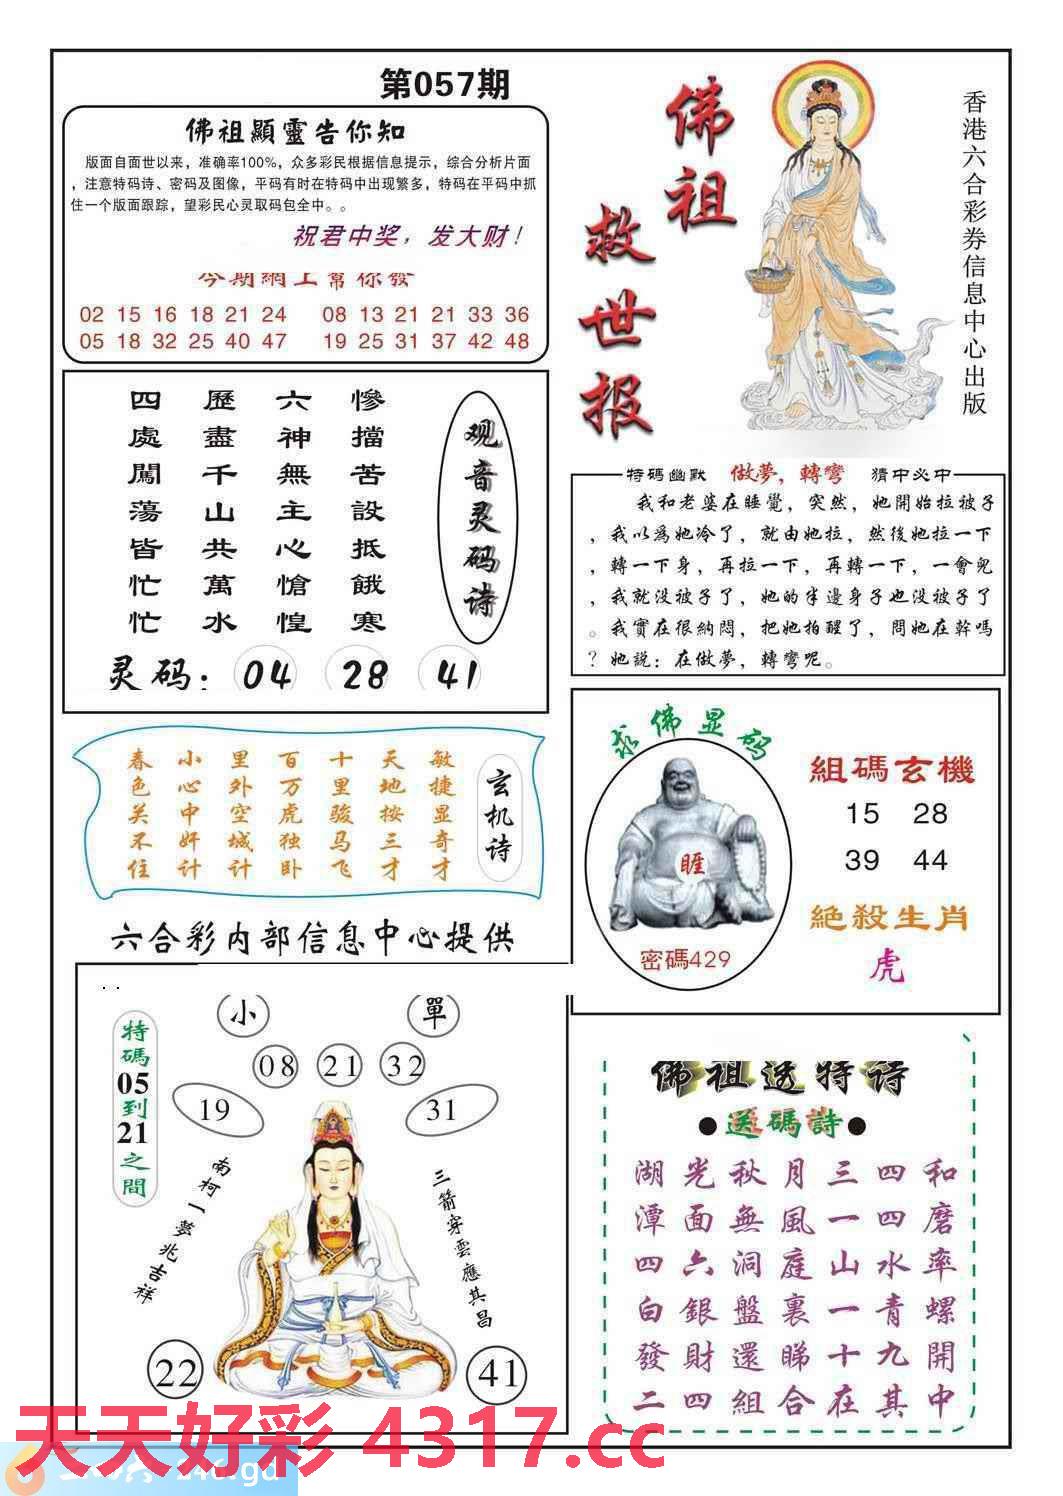 第057期
佛祖顯靈告你知
版面自面世以来，准确率100%，众多彩民根据信息提示，综合分析片面
，注意特码诗、密码及图像，平码有时在特码中出现繁多，特码在平码中抓
住一个版面跟踪，望彩民心灵取码包全中。。
祝君中奖，发大财！
今期網上幫你發
02 15 16 18 21 24 08 13 21 21 33 36
05 18 32 25 40 47 19 25 31 37 42 48
佛祖救世报
香港六合彩券信息中心出版
观音灵码诗
慘擋苦設抵餓寒
六神無主心愴惶
歷盡千山共萬水
四處闖蕩皆忙忙
灵码：04 28 41
特碼幽默 做夢，轉彎 猜中必中
我和老婆在睡覺，突然，她開始拉被子
，我以爲她冷了，就由她拉，然後她拉一下
，轉一下身，再拉一下，再轉一下，一會兒
，我就没被子了，她的半邊身子也没被子了
。我實在很納悶，把她拍醒了，問她在幹嗎
？她説：在做夢，轉彎呢。
玄机诗
敏捷显奇才
天地按三才
十里骏马飞
百万虎独卧
里外空城计
小心中奸计
春色关不住
求佛显码
睚
密碼429
組碼玄機
15 28
39 44
絕殺生肖
虎
六合彩内部信息中心提供
小 單
08 21 32
19 31
特碼05到21之間
南柯一夢兆吉祥
三箭穿雲應其昌
22 41
佛祖透特诗
●送碼詩●
湖光秋月三四和
潭面無風一四磨
四六洞庭山水率
白銀盤裏一青螺
發財還睇十九開
二四組合在其中
天天好彩 4317.cc
246.gd